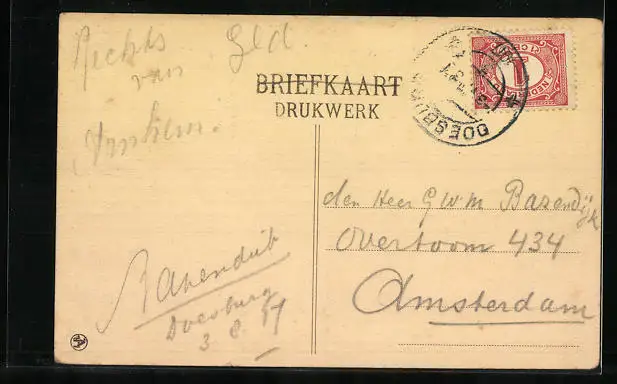 Rechts Gld
van
Arnhem.
BRIEFKAART
DRUKWERK
DOESBURG
NEDERLAND
1 CENT
den Heer G W M Barendijk
Overtoom 434
Amsterdam
Doesburg
3 8